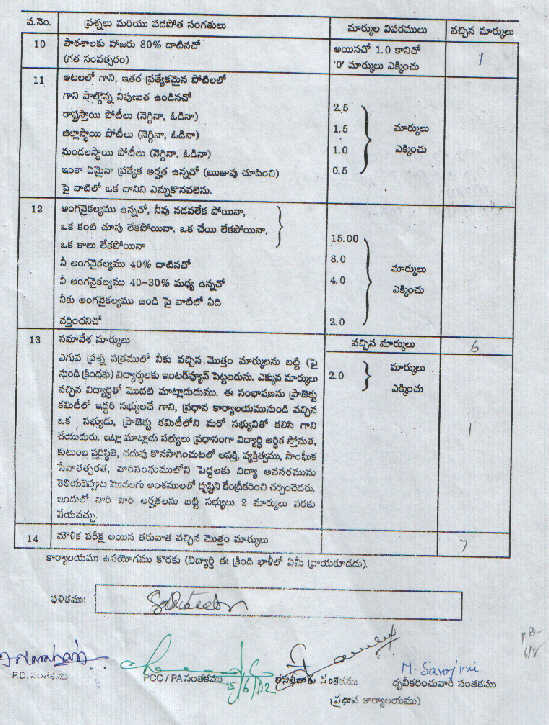 వ.నెం. ప్రశ్నలు మరియు వడపోత సంగతులు మార్కుల వివరములు వచ్చిన మార్కులు
10 పాఠశాలకు హాజరు 80% దాటినచో అయినచో 1.0 కానిచో 1
(గత సంవత్సరం) '0' మార్కులు ఎక్కించు
11 ఆటలలో గాని, ఇతర ప్రత్యేకమైన పోటీలలో
గాని పాల్గొన్న నిపుణత ఉండినచో
రాష్ట్రస్థాయి పోటీలు (నెగ్గినా, ఓడినా) 2.5
జిల్లాస్థాయి పోటీలు (నెగ్గినా, ఓడినా) 1.5 మార్కులు
మండలస్థాయి పోటీలు (నెగ్గినా, ఓడినా) 1.0 ఎక్కించు
ఇంకా ఏమైనా ప్రత్యేక అర్హత ఉన్నచో (ఋజువు చూపించి) 0.5
పై వాటిలో ఒక దానిని ఎన్నుకొనవలెను.
12 అంగవైకల్యము ఉన్నచో, నీవు నడవలేక పోయినా,
ఒక కంటి చూపు లేకపోయినా, ఒక చేయి లేకపోయినా,
ఒక కాలు లేకపోయినా 15.00
నీ అంగవైకల్యము 40% దాటినచో 8.0 మార్కులు
నీ అంగవైకల్యము 40-30% మధ్య ఉన్నచో 4.0 ఎక్కించు
నీకు అంగవైకల్యము ఉండి పై వాటిలో ఏది
వర్తించనిచో 2.0
13 సమావేశ మార్కులు వచ్చిన మార్కులు 6
ఎగువ ప్రశ్న పత్రములో నీకు వచ్చిన మొత్తం మార్కులను బట్టి (పై మార్కులు
నుండి క్రిందకు) విద్యార్థులకు ఇంటర్వ్యూవ్ పెట్టుదురు. ఎక్కువ మార్కులు 2.0 ఎక్కించు
వచ్చిన విద్యార్థితో మొదట మాట్లాడుదురు. ఈ సంభాషణను ప్రాజెక్టు
కమిటీలో ఇద్దరి సభ్యులచే గాని, ప్రధాన కార్యాలయమునుండి వచ్చిన
ఒక సభ్యుడు, ప్రాజెక్టు కమిటీలోని మరో సభ్యునితో కలిసి గాని 1
చేయుదురు. ఇట్లా మాట్లాడు సభ్యులు ప్రధానంగా విద్యార్థి ఆర్థిక స్తోమత,
కుటుంబ పరిస్థితి, చదువు కొనసాగించుటలో ఆసక్తి, వ్యక్తిత్వము, సాంఘిక
బట్టి సభ్యులు 2 మార్కులు వరకు
వేయవచ్చు.
14 మౌళిక పరీక్ష అయిన తరువాత వచ్చిన మొత్తం మార్కులు 7
కార్యాలయము ఉపయోగము కొరకు (విద్యార్థి ఈ క్రింది ఖాళీలో ఏమీ వ్రాయకూడదు).
ఫలితము:
M. Sarojini
P.D. సంతకము PCC / PA సంతకము 5/6/12 సంతకము ధృవీకరించువారి సంతకము
(ప్రధాన కార్యాలయం)